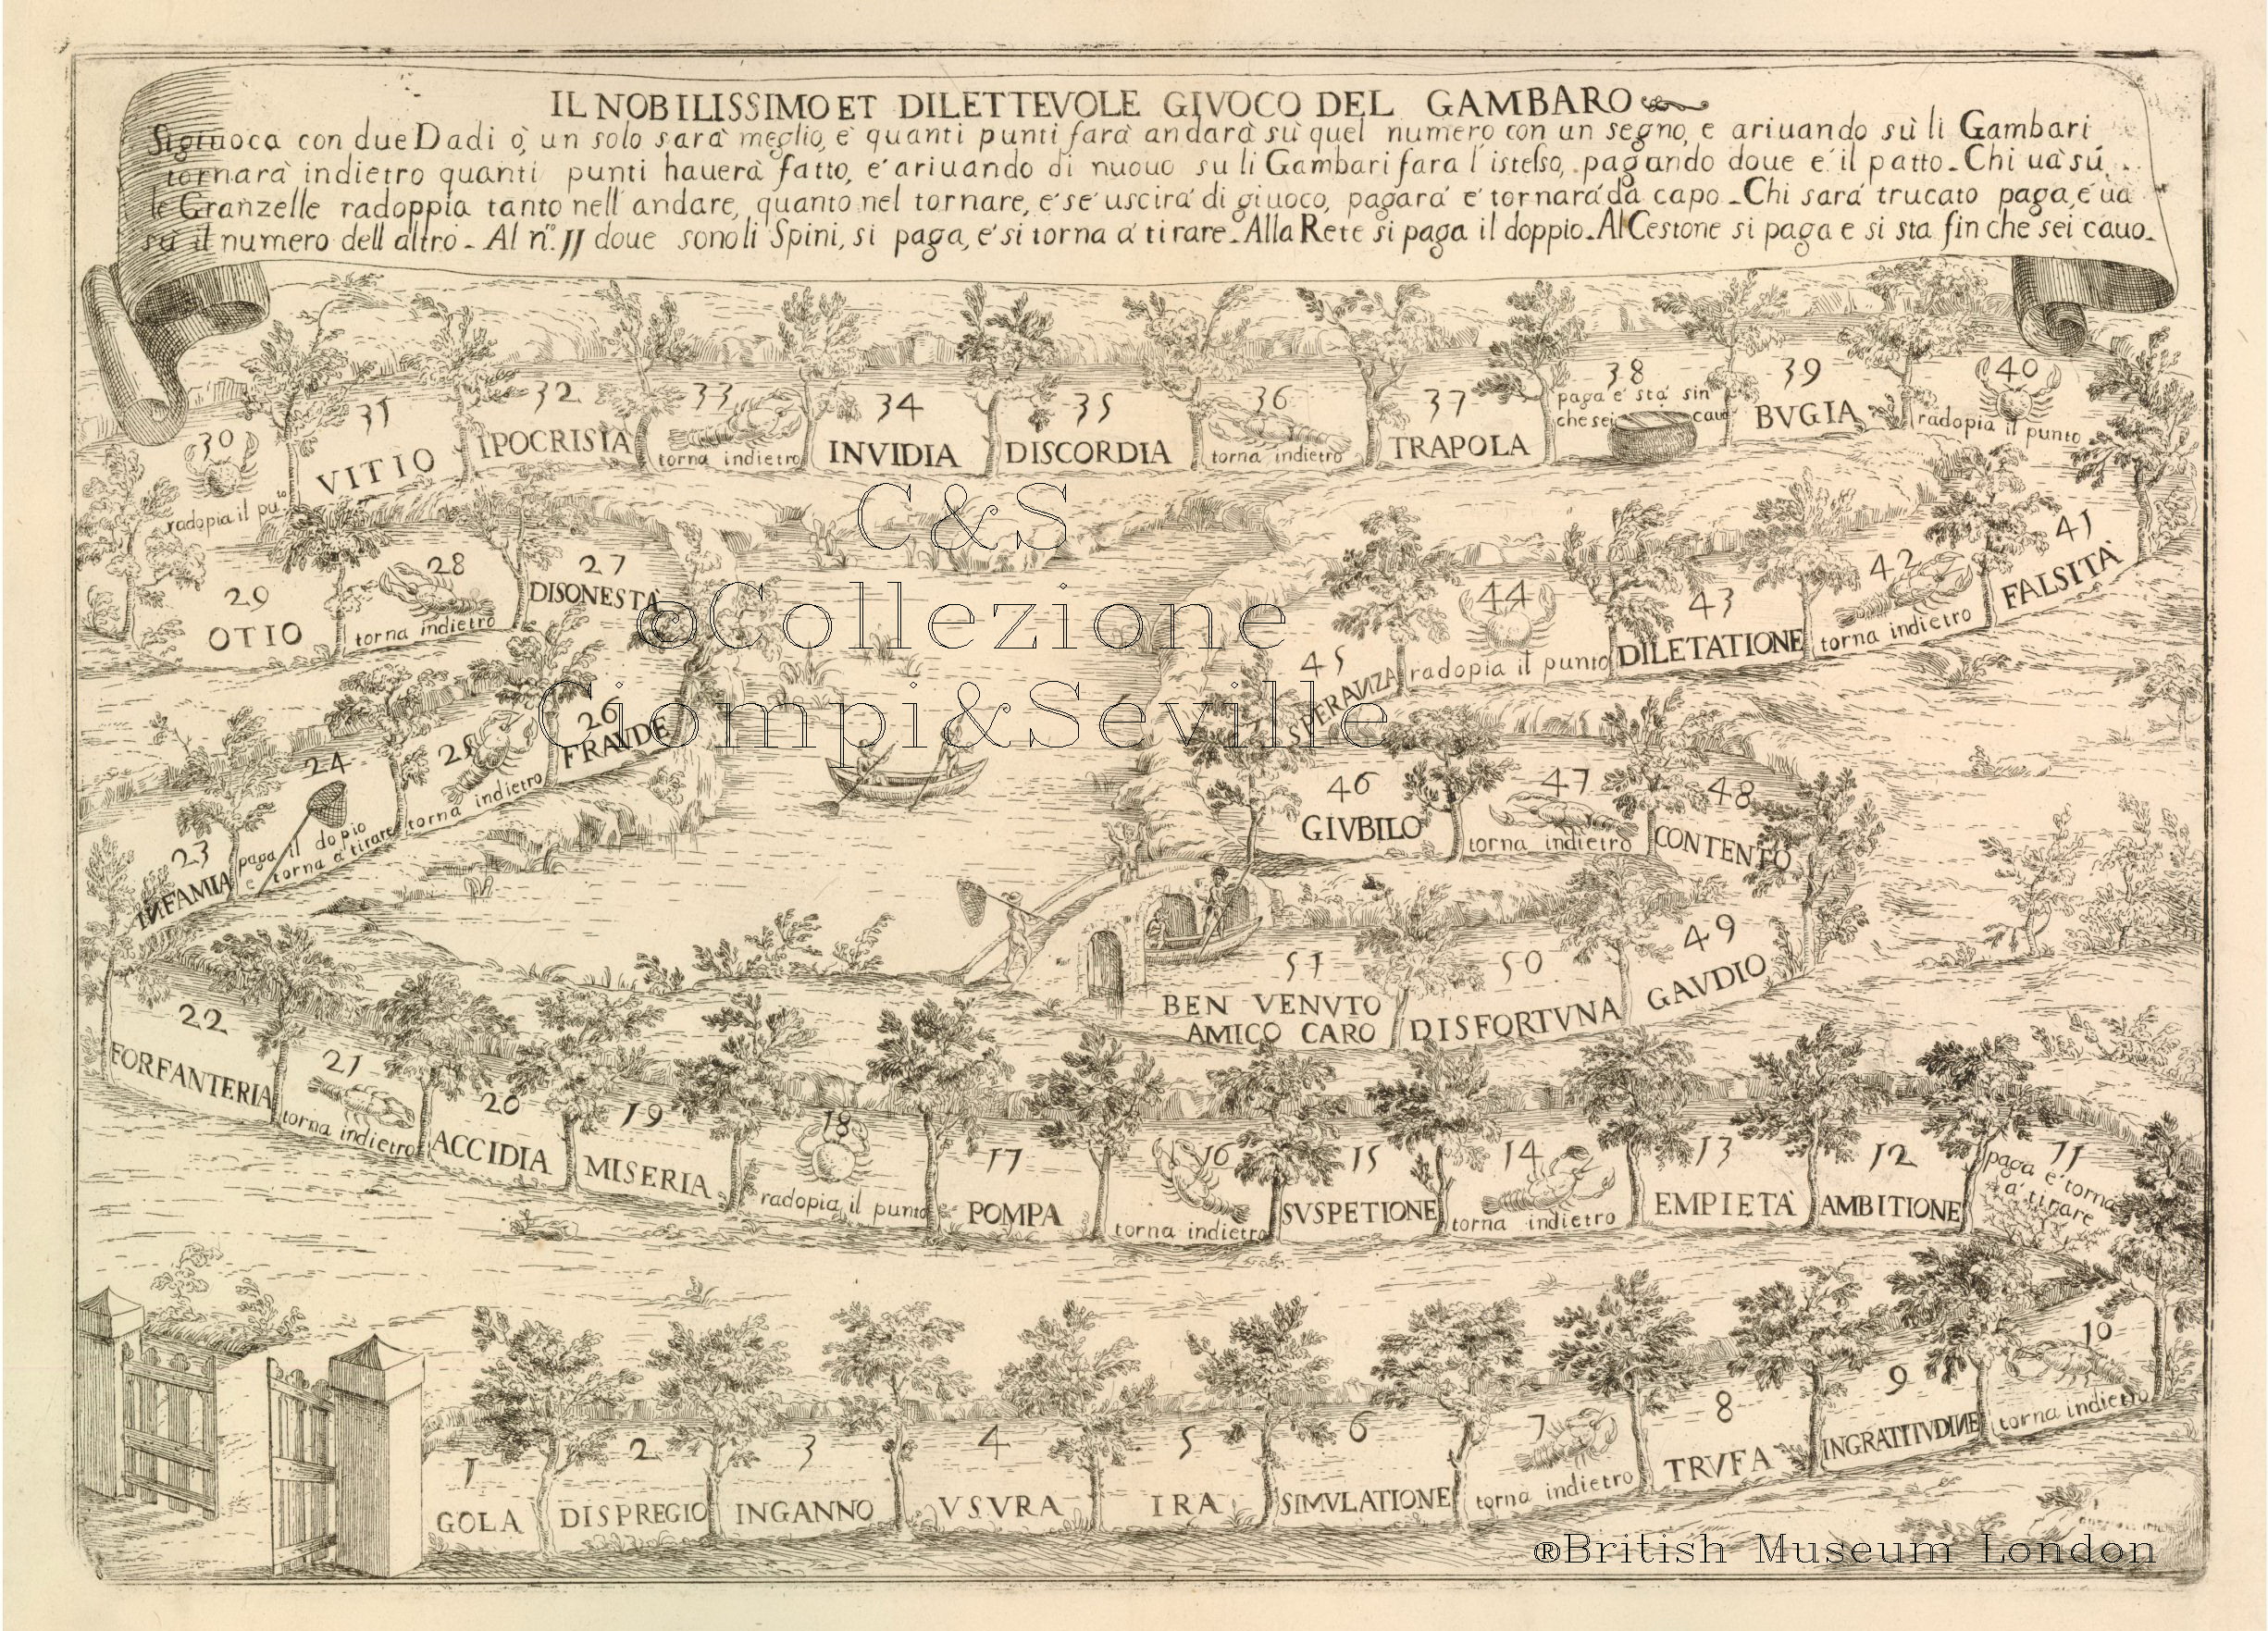 IL NOBILISSIMO ET DILETTEVOLE GIVOCO DEL GAMBARO
Si giuoca con due Dadi ò, un solo sarà meglio, e quanti punti farà andarà sù quel numero con un segno, e ariuando sù li Gambari
tornarà indietro quanti punti hauerà fatto, e ariuando di nuouo su li Gambari fara l'istesso, pagando doue e il patto. Chi uà sù
le Granzelle radoppia tanto nell andare, quanto nel tornare, e se uscirà di giuoco, pagarà e tornarà da capo. Chi sarà trucato paga, e uà
sù il numero dell altro. Al nº. 11 doue sono li Spini, si paga, e si torna à tirare. Alla Rete si paga il doppio. Al Cestone si paga e si sta fin che sei cauo.
30
radopia il pu.to
31
VITIO
32
IPOCRISIA
33
torna indietro
34
INVIDIA
35
DISCORDIA
36
torna indietro
37
TRAPOLA
38
paga e stà sin
che sei cauo
39
BVGIA
40
radopia il punto
29
OTIO
28
torna indietro
27
DISONESTA
C&S
©Collezione
Ciompi&Seville
45
SPERANZA
44
radopia il punto
43
DILETATIONE
42
torna indietro
41
FALSITÀ
23
INFAMIA
24
paga il dopio
e torna à tirare
25
torna indietro
26
FRAVDE
46
GIVBILO
47
torna indietro
48
CONTENTO
51
BEN VENVTO
AMICO CARO
50
DISFORTVNA
49
GAVDIO
22
FORFANTERIA
21
torna indietro
20
ACCIDIA
19
MISERIA
18
radopia il punto
17
POMPA
16
torna indietro
15
SVSPETIONE
14
torna indietro
13
EMPIETÀ
12
AMBITIONE
11
paga e torna
à tirare
1
GOLA
2
DISPREGIO
3
INGANNO
4
VSVRA
5
IRA
6
SIMVLATIONE
7
torna indietro
8
TRVFA
9
INGRATITVDINE
10
torna indietro
®British Museum London